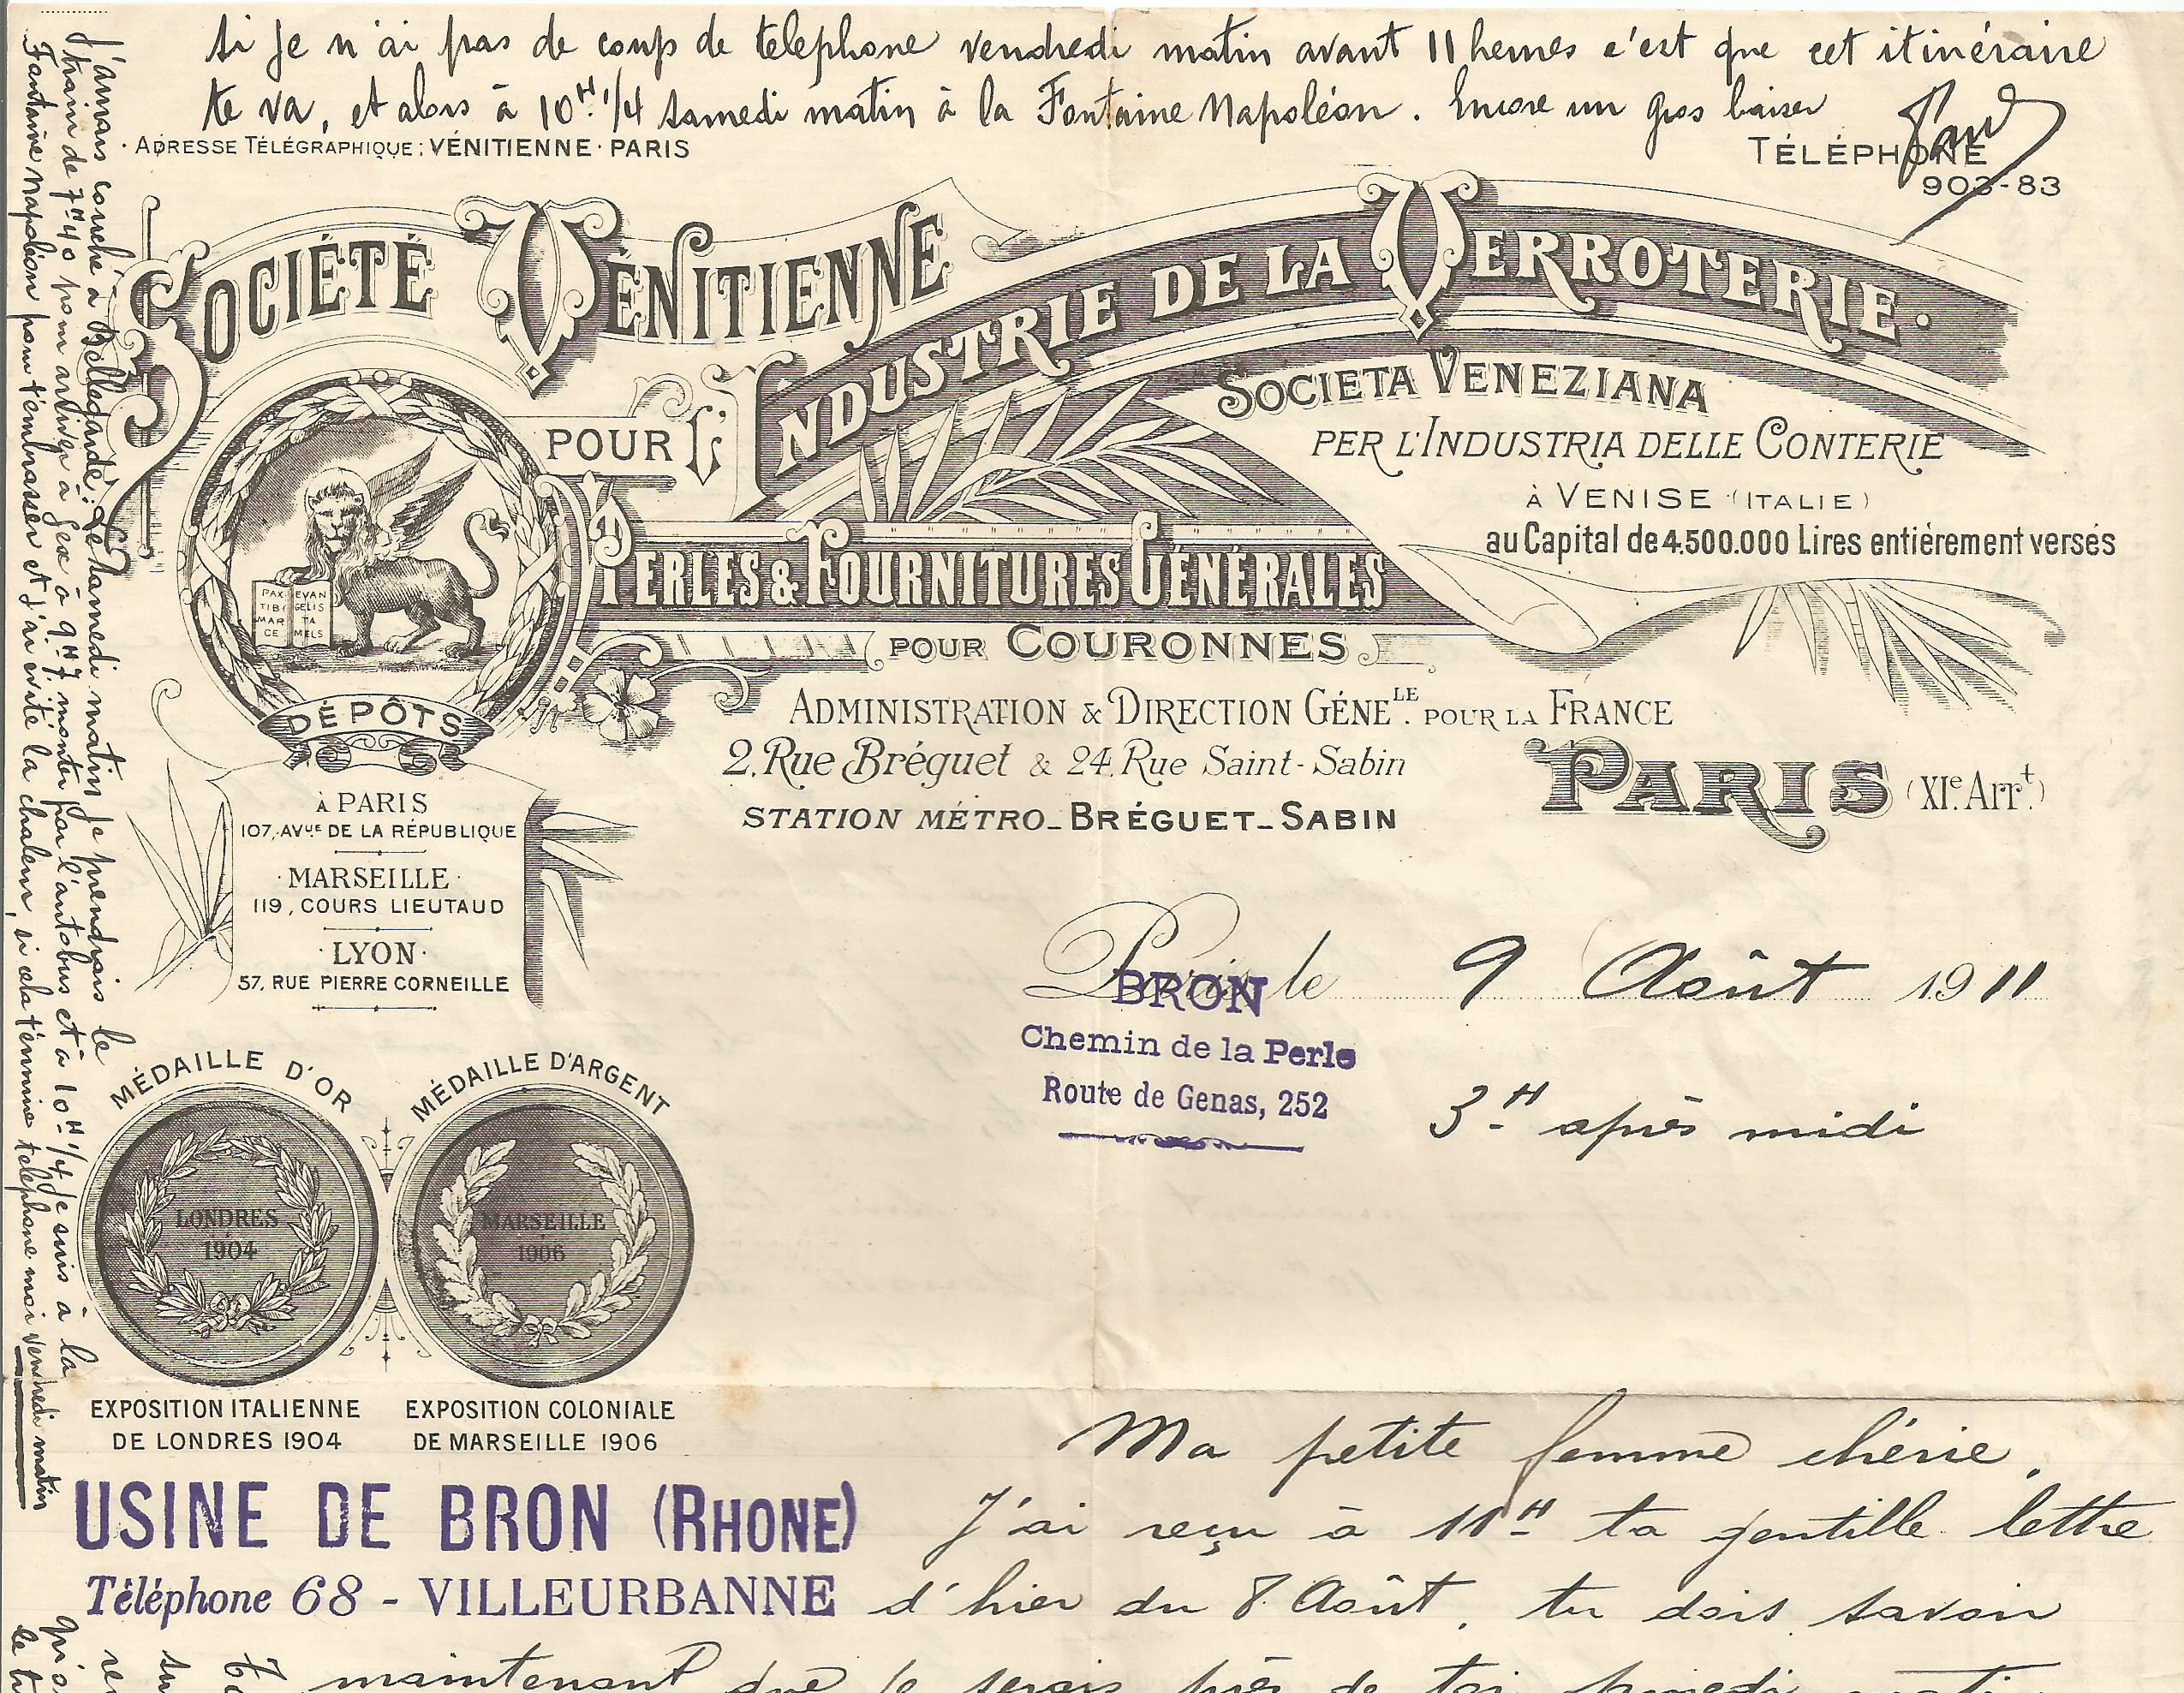 si je n'ai pas de coup de telephone vendredi matin avant 11 heures c'est que cet itinéraire
te va, et alors à 10H 1/4 samedi matin à la Fontaine Napoléon. Encore un gros baiser
Paul
· ADRESSE TÉLÉGRAPHIQUE : VÉNITIENNE · PARIS
TÉLÉPHONE
903-83
SOCIÉTÉ VÉNITIENNE
POUR L'INDUSTRIE DE LA VERROTERIE.
SOCIETA VENEZIANA
PER L'INDUSTRIA DELLE CONTERIE
À VENISE (ITALIE)
au Capital de 4.500.000 Lires entièrement versés
PERLES & FOURNITURES GÉNÉRALES
POUR COURONNES
PAX TIBI MARCE
EVANGELISTA MELS
DÉPÔTS
à PARIS
107, AVUE DE LA RÉPUBLIQUE
· MARSEILLE ·
119, COURS LIEUTAUD
· LYON ·
57, RUE PIERRE CORNEILLE
ADMINISTRATION & DIRECTION GÉNELE. POUR LA FRANCE
2, Rue Bréguet & 24, Rue Saint-Sabin
STATION MÉTRO_BRÉGUET_SABIN
PARIS (XIe. Arrt.)
Paris le 9 Août 1911
BRON
Chemin de la Perle
Route de Genas, 252
3H après midi
MÉDAILLE D'OR
LONDRES
1904
EXPOSITION ITALIENNE
DE LONDRES 1904
MÉDAILLE D'ARGENT
MARSEILLE
1906
EXPOSITION COLONIALE
DE MARSEILLE 1906
USINE DE BRON (RHONE)
Téléphone 68 - VILLEURBANNE
Ma petite femme chérie,
J'ai reçu à 11H ta gentille lettre
d'hier du 8 Août, tu dois savoir
maintenant que je serais près de toi samedi matin
J'aurais couché à Bellegarde; le samedi matin je prendrais le
train de 7H40 pour arriver à Gex à 9H7 monter par l'autobus et à 10H 1/4 je suis à la
Fontaine Napoléon pour t'embrasser et j'ai evité la chaleur, si cela t'ennuie telephone moi vendredi matin